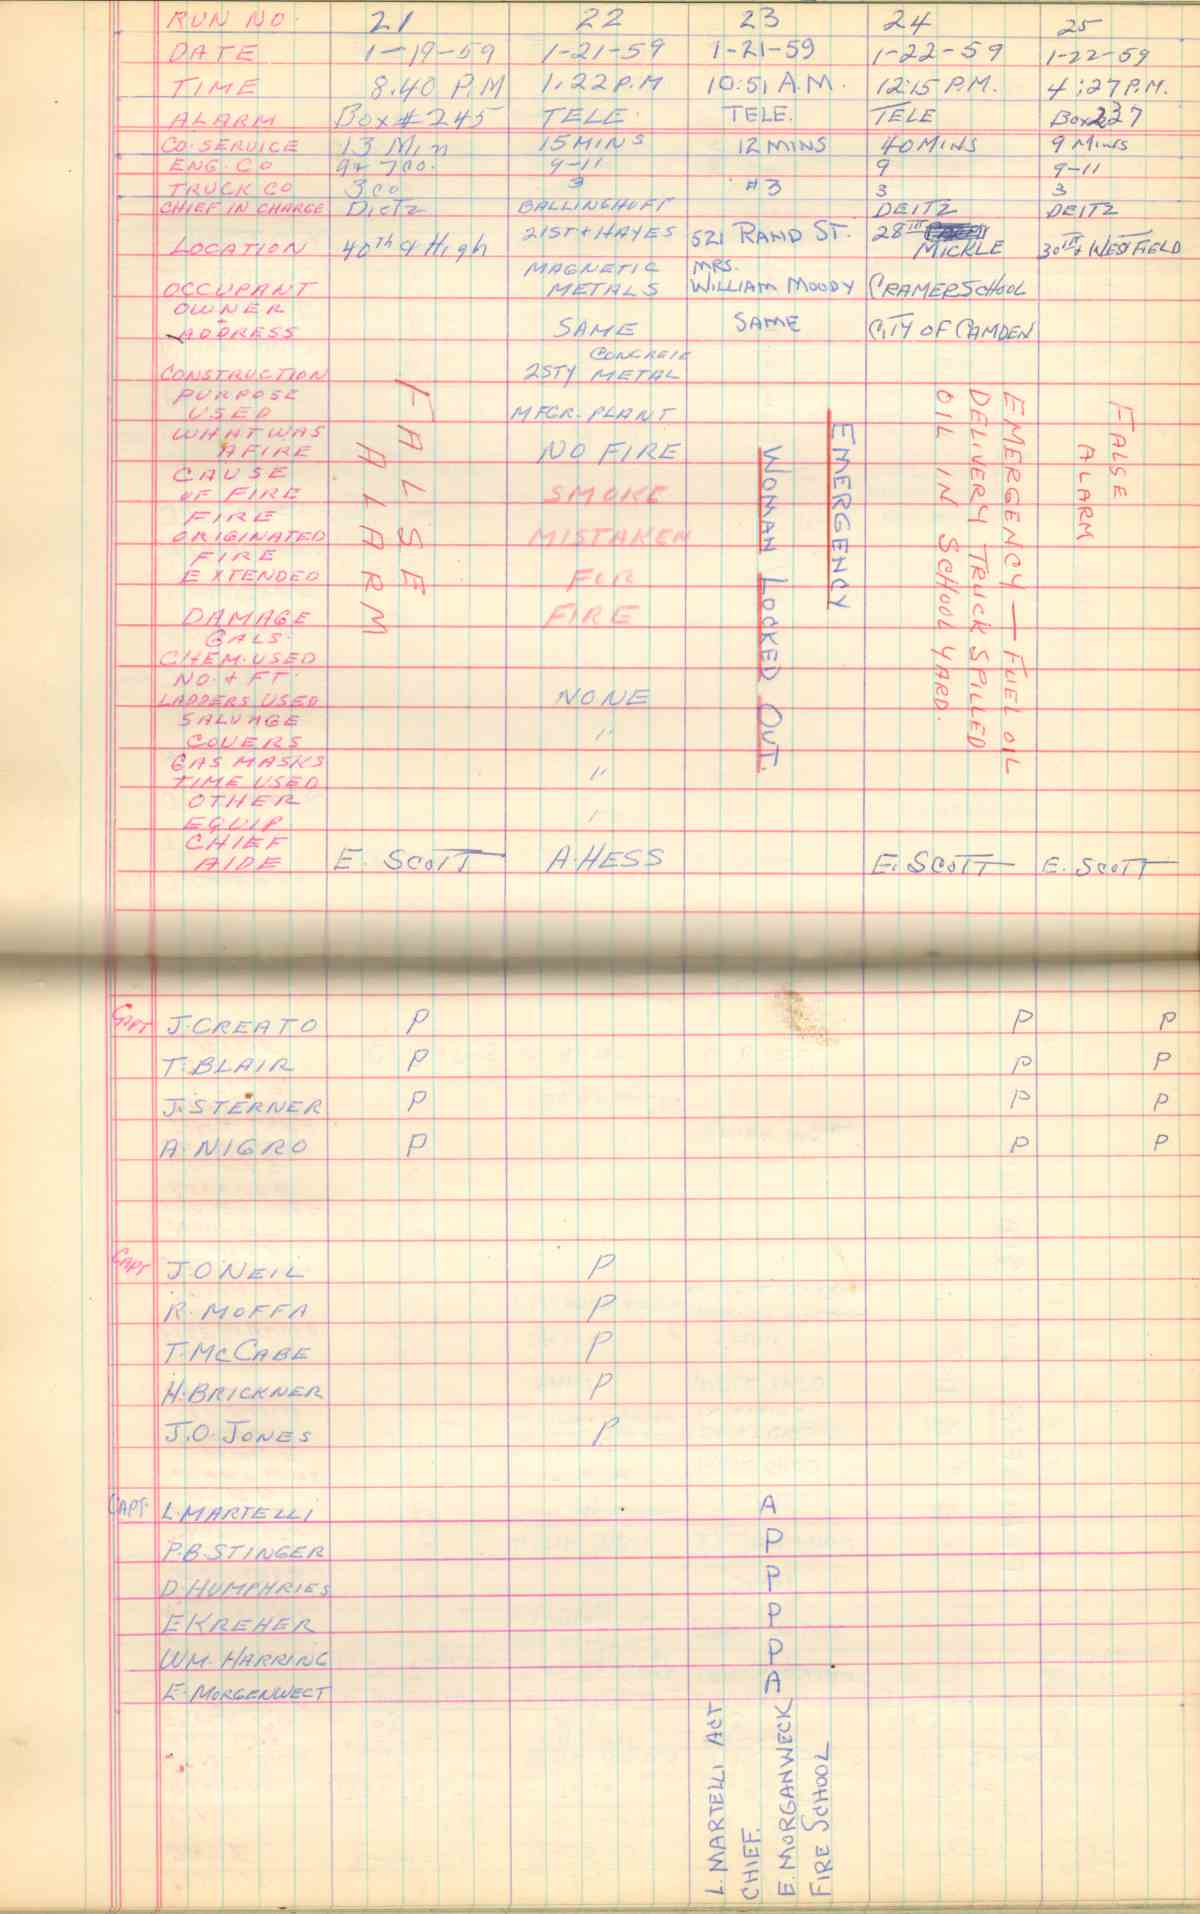 RUN NO. 21 22 23 24 25
DATE 1-19-59 1-21-59 1-21-59 1-22-59 1-22-59
TIME 8.40 P.M 1:22 P.M 10:51 A.M. 12:15 P.M. 4:27 P.M.
ALARM Box # 245 TELE. TELE. TELE Box 237
CO. SERVICE 13 Min 15 MINS 12 MINS 40 MINS 9 Mins
ENG. CO 9-11 9 9-11
TRUCK CO 3 co 3 #3 3 3
CHIEF IN CHARGE Dietz BALLINGHOFF DEITZ DEITZ
LOCATION 40th & High 21ST + HAYES 521 RAND ST. 28TH MICKLE 30TH + WESTFIELD
OCCUPANT MAGNETIC METALS MRS. WILLIAM MOODY CRAMER SCHOOL
OWNER
ADDRESS SAME SAME CITY OF CAMDEN
CONSTRUCTION 2STY CONCRETE METAL
PURPOSE
USED MFGR. PLANT
WHAT WAS
AFIRE NO FIRE
CAUSE
OF FIRE SMOKE
FIRE
ORIGINATED MISTAKEN
FIRE
EXTENDED FOR
DAMAGE FIRE
GALS.
CHEM. USED
NO. + FT.
LADDERS USED NONE
SALVAGE
COVERS "
GAS MASKS
TIME USED "
OTHER
EQUIP
CHIEF
AIDE E. SCOTT A. HESS E. SCOTT E. SCOTT
FALSE
ALARM
EMERGENCY
WOMAN LOCKED OUT.
EMERGENCY — FUEL OIL
DELIVERY TRUCK SPILLED
OIL IN SCHOOL YARD.
FALSE
ALARM
CAPT J. CREATO P P P
T. BLAIR P P P
J. STERNER P P P
A. NIGRO P P P
CAPT J. O'NEIL P
R. MOFFA P
T. McCABE P
H. BRICKNER P
J.O. JONES P
CAPT. L. MARTELLI A
P.B. STINGER P
D. HUMPHRIES P
E KREHER P
WM. HARRING P
E. MORGENWECT A
L. MARTELLI ACT
CHIEF.
E. MORGANWECK
FIRE SCHOOL